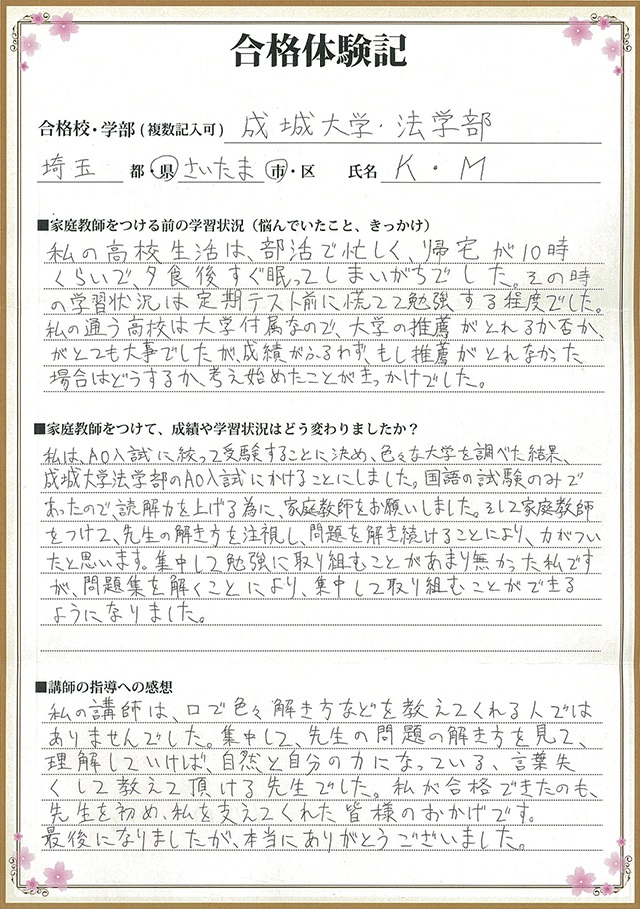 合格体験記
合格校・学部(複数記入可) 成城大学・法学部
埼玉 都・県 さいたま 市・区 氏名 K・M
■家庭教師をつける前の学習状況（悩んでいたこと、きっかけ）
私の高校生活は、部活で忙しく、帰宅が10時
くらいで、夕食後すぐ眠ってしまいがちでした。その時
の学習状況は定期テスト前に慌てて勉強する程度でした。
私の通う高校は大学付属なので、大学の推薦がとれるか否か、
がとても大事でしたが、成績がふるわず、もし推薦がとれなかった
場合はどうするか、考え始めたことがきっかけでした。
■家庭教師をつけて、成績や学習状況はどう変わりましたか？
私は、AO入試に絞って受験することに決め、色々な大学を調べた結果、
成城大学法学部のAO入試にかけることにしました。国語の試験のみで
あったので、読解力を上げる為に、家庭教師をお願いしました。そして家庭教師
をつけて、先生の解き方を注視し、問題を解き続けることにより、力がつい
たと思います。集中して勉強に取り組むことがあまり無かった私です
が、問題集を解くことにより、集中して取り組むことができる
ようになりました。
■講師の指導への感想
私の講師は、口で色々解き方などを教えてくれる人では
ありませんでした。集中して、先生の問題の解き方を見て、
理解していけば、自然と自分の力になっている、言葉失
くして教えて頂ける先生でした。私が合格できたのも、
先生を初め、私を支えてくれた皆様のおかげです。
最後になりましたが、本当にありがとうございました。